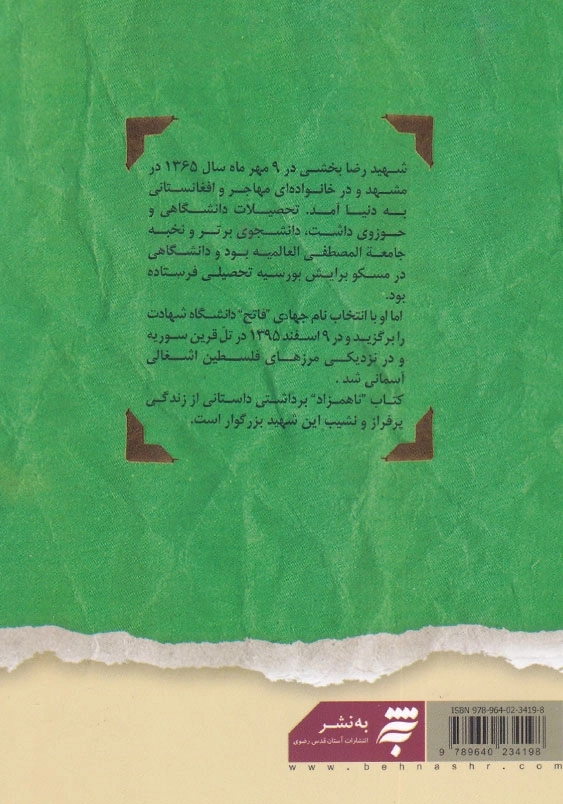 شهید رضا بخشی در ۹ مهر ماه سال ۱۳۶۵ در
مشهد و در خانواده‌ای مهاجر و افغانستانی
به دنیا آمد. تحصیلات دانشگاهی و
حوزوی داشت، دانشجوی برتر و نخبه
جامعة المصطفی العالمیه بود و دانشگاهی
در مسکو برایش بورسیه تحصیلی فرستاده
بود.
اما او با انتخاب نام جهادی "فاتح" دانشگاه شهادت
را برگزید و در ۹ اسفند ۱۳۹۵ در تل قرین سوریه
و در نزدیکی مرزهای فلسطین اشغالی
آسمانی شد .
کتاب "ناهمزاد" برداشتی داستانی از زندگی
پرفراز و نشیب این شهید بزرگوار است.
به‌نشر
انتشارات آستان قدس رضوی
ISBN 978-964-02-3419-8
9 789640 234198
www.behnashr.com